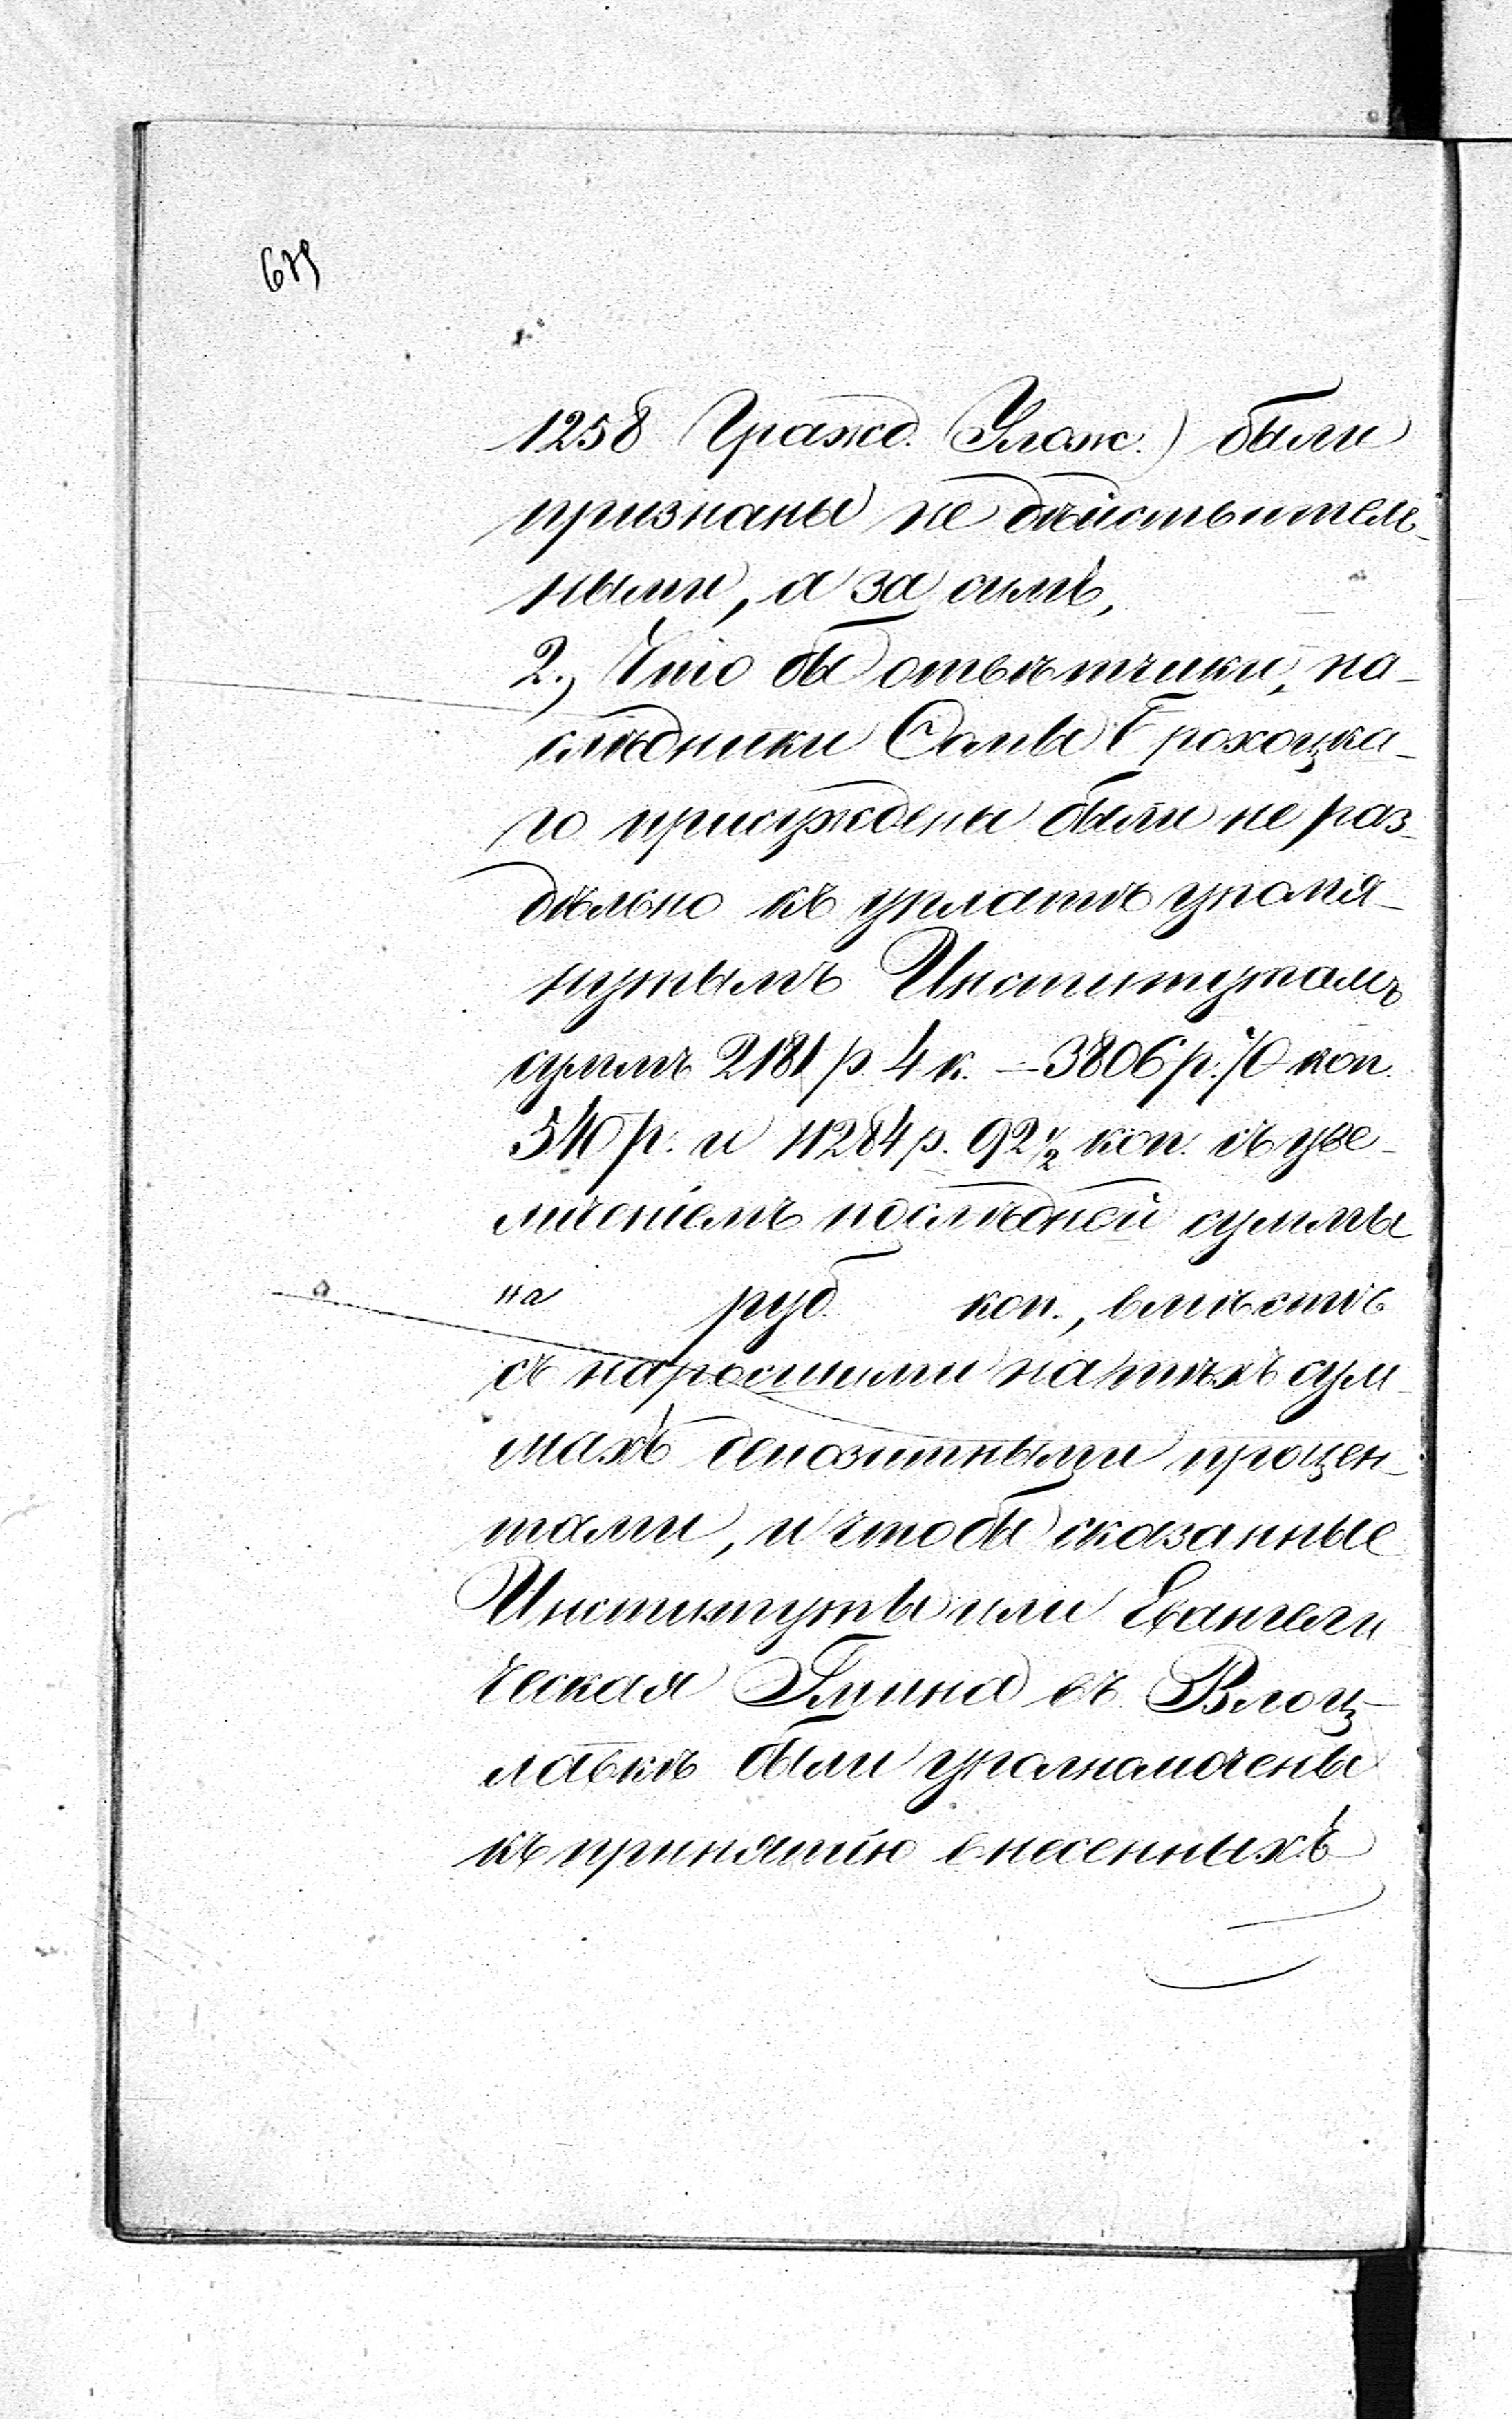 679
1258 Гражд. Улож.) были
признаны не дѣйствитель-
ными, а за симъ,
2., Что бы отвѣтчики, на-
слѣдники Сомы Грохоцка-
го присуждены были не раз-
дѣльно къ уплатѣ упомя-
нутымъ Институтамъ
суммъ 2181 р. 4 к. – 3806 р. 70 коп.
540 р. и 11284 р. 92 1/2 коп. съ уве-
личеніемъ послѣдней суммы
на руб. коп., вмѣстѣ
съ наросшими на тѣхъ сум-
махъ депозитными процен-
тами, и чтобы сказанные
Институты или Евангели
ческая Гмина въ Влоц-
лавкѣ были уполномочены
къ принятію внесенныхъ